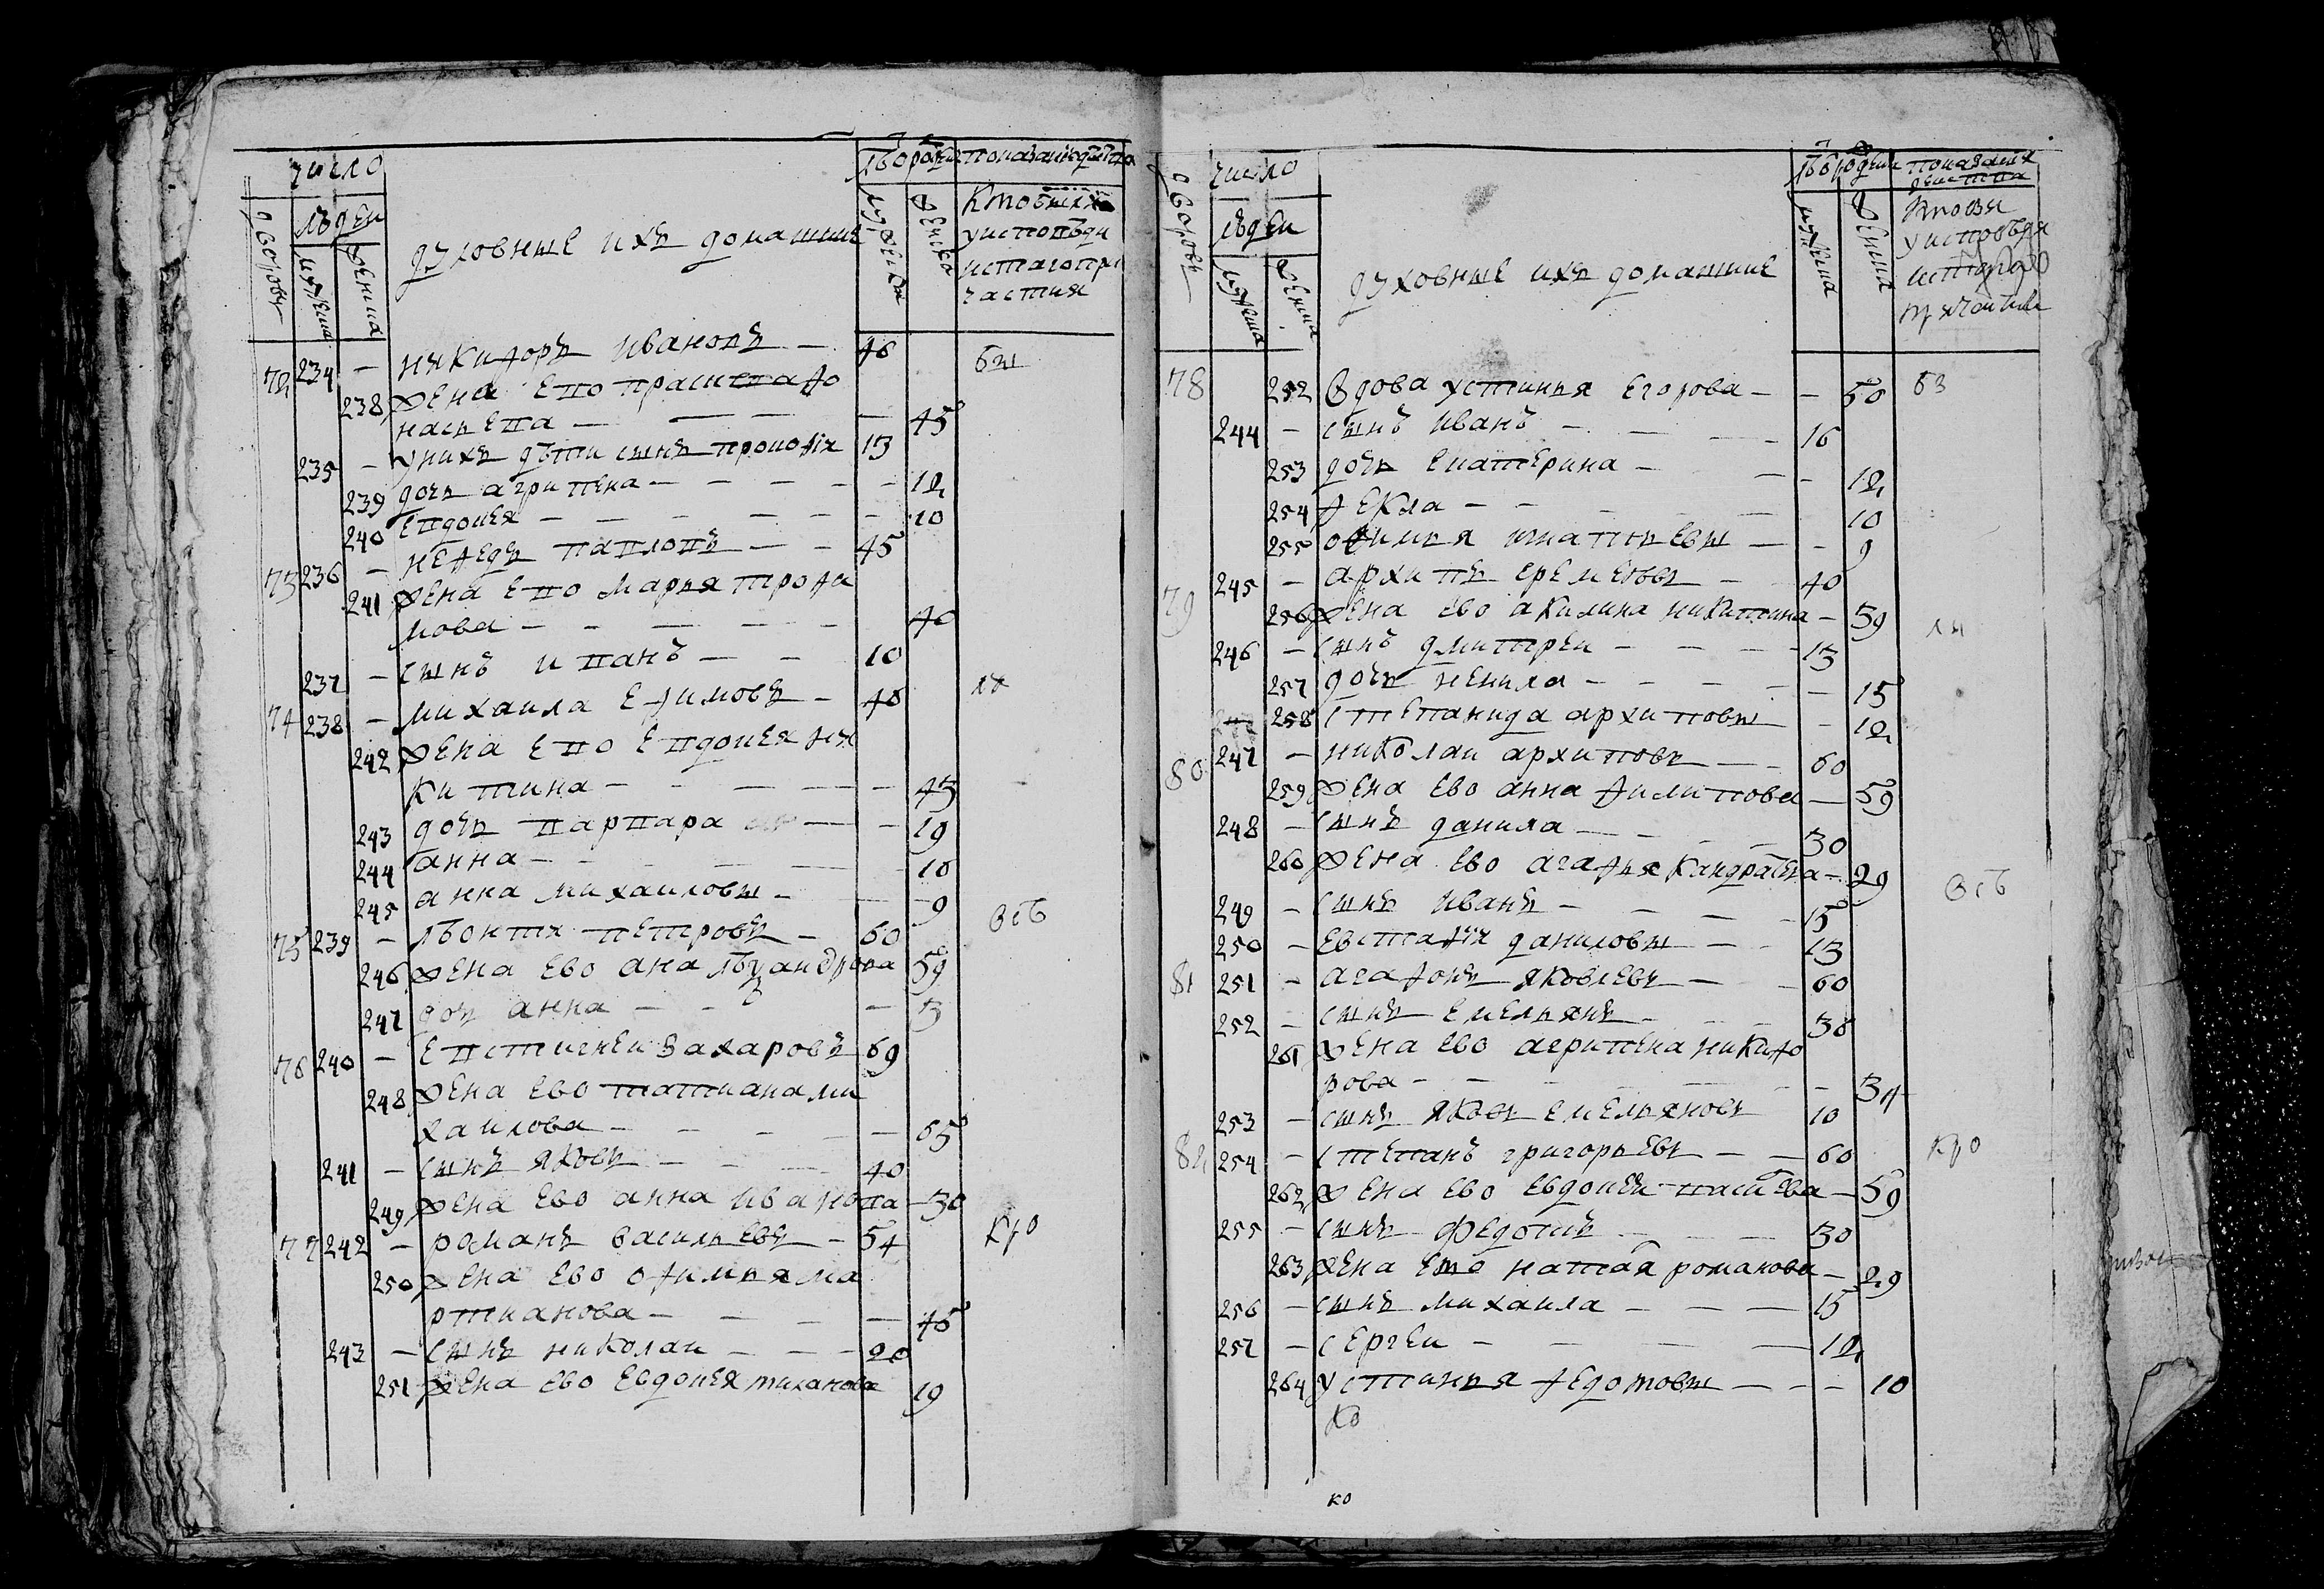 число
людеи
дворовъ
мужеска
женска
духовные ихъ домашние
мужеска
женска
показание действа
кто былъ
у исповеди
и стаго при
частия
72 234 — никифоръ ивановъ — 46 бы
238 жена ево прасковя афо
насьева — — — 45
235 — у нихъ дѣти сынъ прокофiя 13
239 дочь агрипена — — — — 12
240 евдокея — — — — 10
73 236 — нефедъ павловъ — — 45
241 жена ево марья трофи
мова — — — — 40
237 — сынъ иванъ — — 10
74 238 — михаила ефимовъ — 46
242 жена ево евдокея ни
китина — — — — 43
243 дочь варвара — — 19
244 анна — — — — 10
245 анна михаиловы — — 9
75 239 — лѣонтя петровъ — 60 всѣ
246 жена ево ана 59
247 доч анна — — — 3
76 240 — евстигнеи захаровъ 69
248 жена ево татиана ми
хаилова — — — — 65
241 — сынъ яковъ — — — 40
249 жена ево анна иванова — 30
77 242 — романъ васильевъ — 54 кро
250 жена ево офимья ма
ртианова — — — — 45
243 — сынъ николаи — — — 20
251 жена ево евдокея тиханова 19
число
людеи
дворовъ
мужеска
женска
духовные ихъ домашние
мужеска
женска
показания
действа
кто бы
у исповеди
и стаго
причастия
78 252 вдова устинья егорова — — 50
244 — сынъ иванъ — — — 16
253 дочь екатерина — — — 12
254 фекла — — — 10
255 офимья игнатьевы — — 9
79 245 — архипъ еремѣевъ — 40
256 жена ево акилина никитина — 39
246 — сынъ дмитреи — — — 13
257 дочь ненила — — — — 15
258 степанида архиповы — 12
80 247 — николаи архиповъ — — 60
259 жена ево анна филипова — 59
248 — сынъ данила — — — 30
260 жена ево агафья кандратева — 29
249 — сынъ иванъ — — — 15 всѣ
250 — евстафiя даниловы — — 13
81 251 — агафонъ яковлевъ — — 60
252 — сынъ емельянъ — — — 38
261 жена ево агрипена никифо
рова — — — — — 34
253 — сынъ яковъ емельяновъ 10
82 254 — степанъ григорьевъ — — 60 кро
262 жена ево евдокеи — 59
255 — сынъ федотъ — — — 30
263 жена ево наталя романова — 29
256 — сынъ михаила — — — 15
257 — сергеи — — — 12
264 устинья федотовы — — — 10
ко
ко